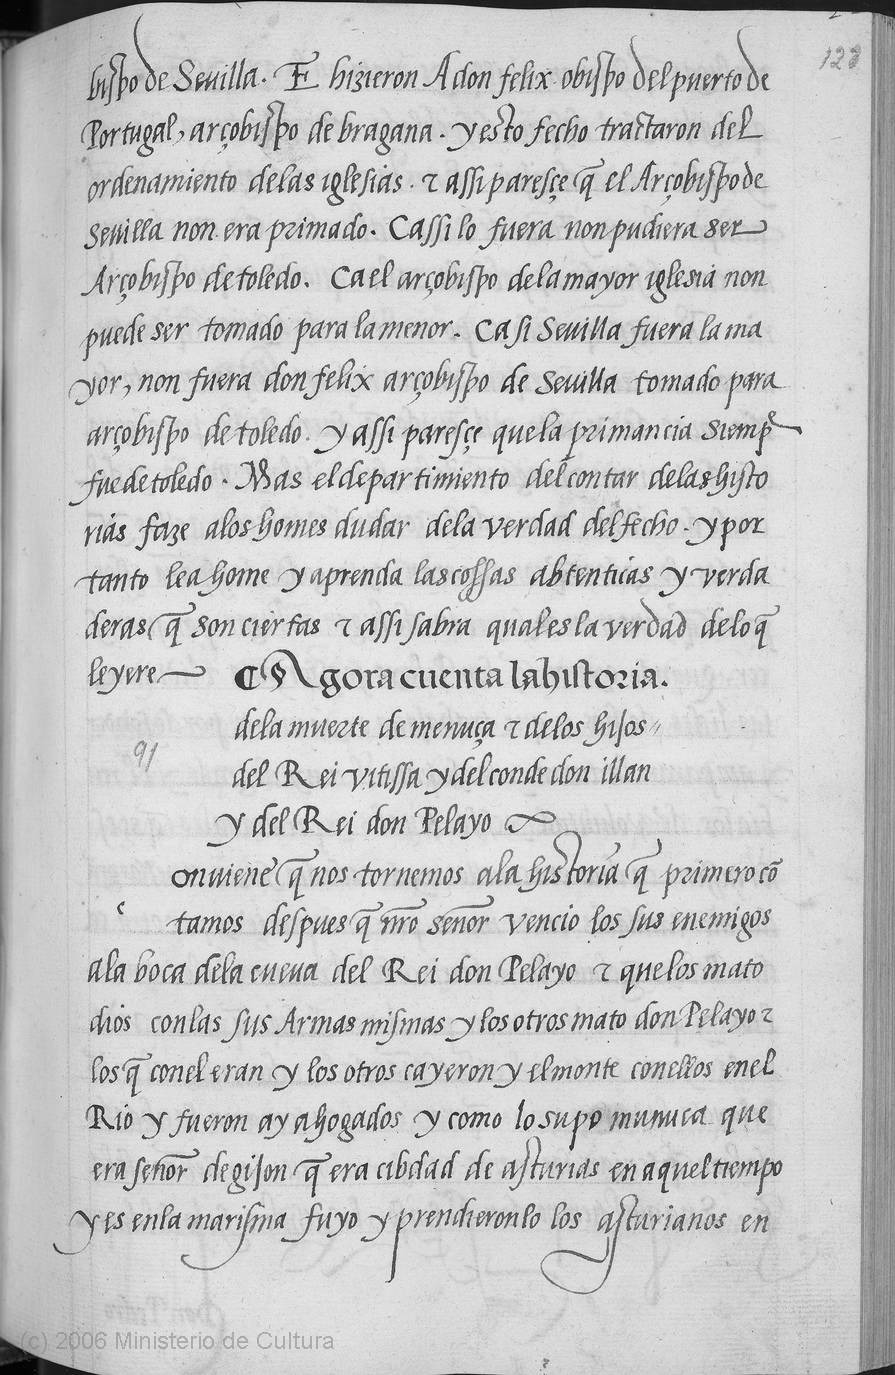 123
bispo de Sevilla. E hizieron A don felix obispo del puerto de
Portugal, arçobispo de bragana. y esto fecho tractaron del
ordenamiento delas iglesias. τ assi paresçe q̃ el Arçobispo de
Sevilla non era primado. Ca ssi lo fuera non pudiera ser
Arçobispo de toledo. Ca el arçobispo dela mayor iglesia non
puede ser tomado para la menor. Ca si Sevilla fuera la ma
yor, non fuera don felix arçobispo de Sevilla tomado para
arçobispo de toledo. y assi paresçe que la primancia siemp̃
fue de toledo. Mas el departimiento del contar delas histo
rias faze alos homes dudar dela verdad del fecho. y por
tanto lea home y aprenda las cossas abtenticas y verda
deras q̃ son ciertas τ assi sabra qual es la verdad de lo q̃
leyere
Agora cuenta la historia.
dela muerte de menuça τ delos hijos
del Rei vitissa y del conde don illan
y del Rei don Pelayo
91
c
onviene q̃ nos tornemos ala historia q̃ primero cõ
tamos despues q̃ nr̃o señor vencio los sus enemigos
ala boca dela cueva del Rei don Pelayo τ que los mato
dios con las sus Armas mismas y los otros mato don Pelayo τ
los q̃ con el eran y los otros cayeron y el monte con ellos en el
Rio y fueron ay ahogados y como lo supo munuca que
era señor de gijon q̃ era cibdad de asturias en aquel tiempo
y es en la marisma fuyo y prendieronlo los asturianos en
(c) 2006 Ministerio de Cultura